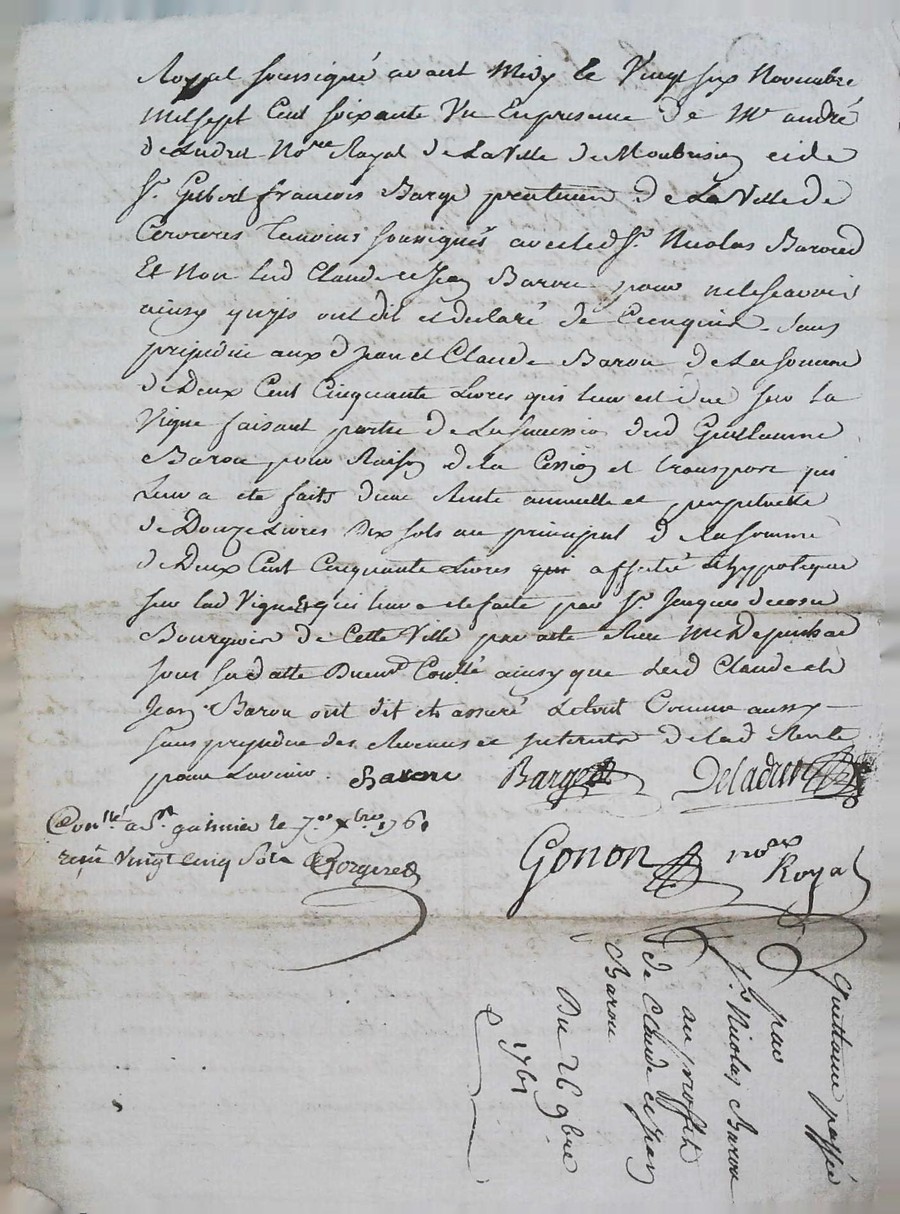 Royal soussigné avant Midy le Vingt six Novembre
mil sept Cent soixante Un En presence de Mr andré
Nore Royal de La Ville de et de
Sr. Gilbert francois Barge de La Ville de
Cervieres Temoins soussignés avec led Sr. Nicolas Barou
Et Non Lesd Claude et Jean Barou pour ne le scavoir
ainsy qu'ils ont dit et declaré de Enquis - sans
prejudice aux d Jean et Claude Barou de La somme
de Deux Cent Cinquante Livres qui leur est due sur la
Vigne faisant partie de La succession dud Guillaume
Barou pour Raison de la Cession et transport qui
Leur a eté faite d'une Rente annuelle et perpetuelle
de Douze Livres Dix sols au principal de la somme
de Deux Cent Cinquante Livres affecté & hypotequé
sur lad Vigne Et qui leur a eté faite par Sr. Jacques
Bourgeois de Cette Ville par acte Receu Me
sous sa datte Duemt Conllé ainsy que Lesd Claude et
Jean Barou ont dit et assuré Le tout Comme aussy -
sans prejudice des Revenus et Interets de lad Rente
pour Lavenir. Barou Barge Deladret
Conllé a St. galmier le 7e. xbre 1761
reçu Vingt cinq sols
Gonon nore
Royal
Quittance passée
par
Sr. Nicolas Barou
au proffit
de Claude et Jean
Barou
Du 26 9bre
1761